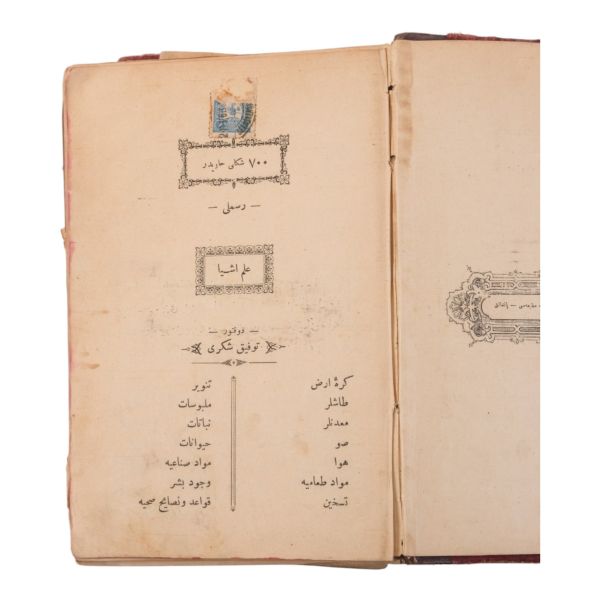 ٧٠٠ شكلی حاويدر
— رسملی —
علم اشيا
— دوقتور —
توفيق شكری
كرۀ ارض
طاشلر
معدنلر
صو
هوا
مواد طعاميه
تسخين
تنوير
ملبوسات
نباتات
حيوانات
مواد صناعيه
وجود بشر
قواعد ونصايح صحيه